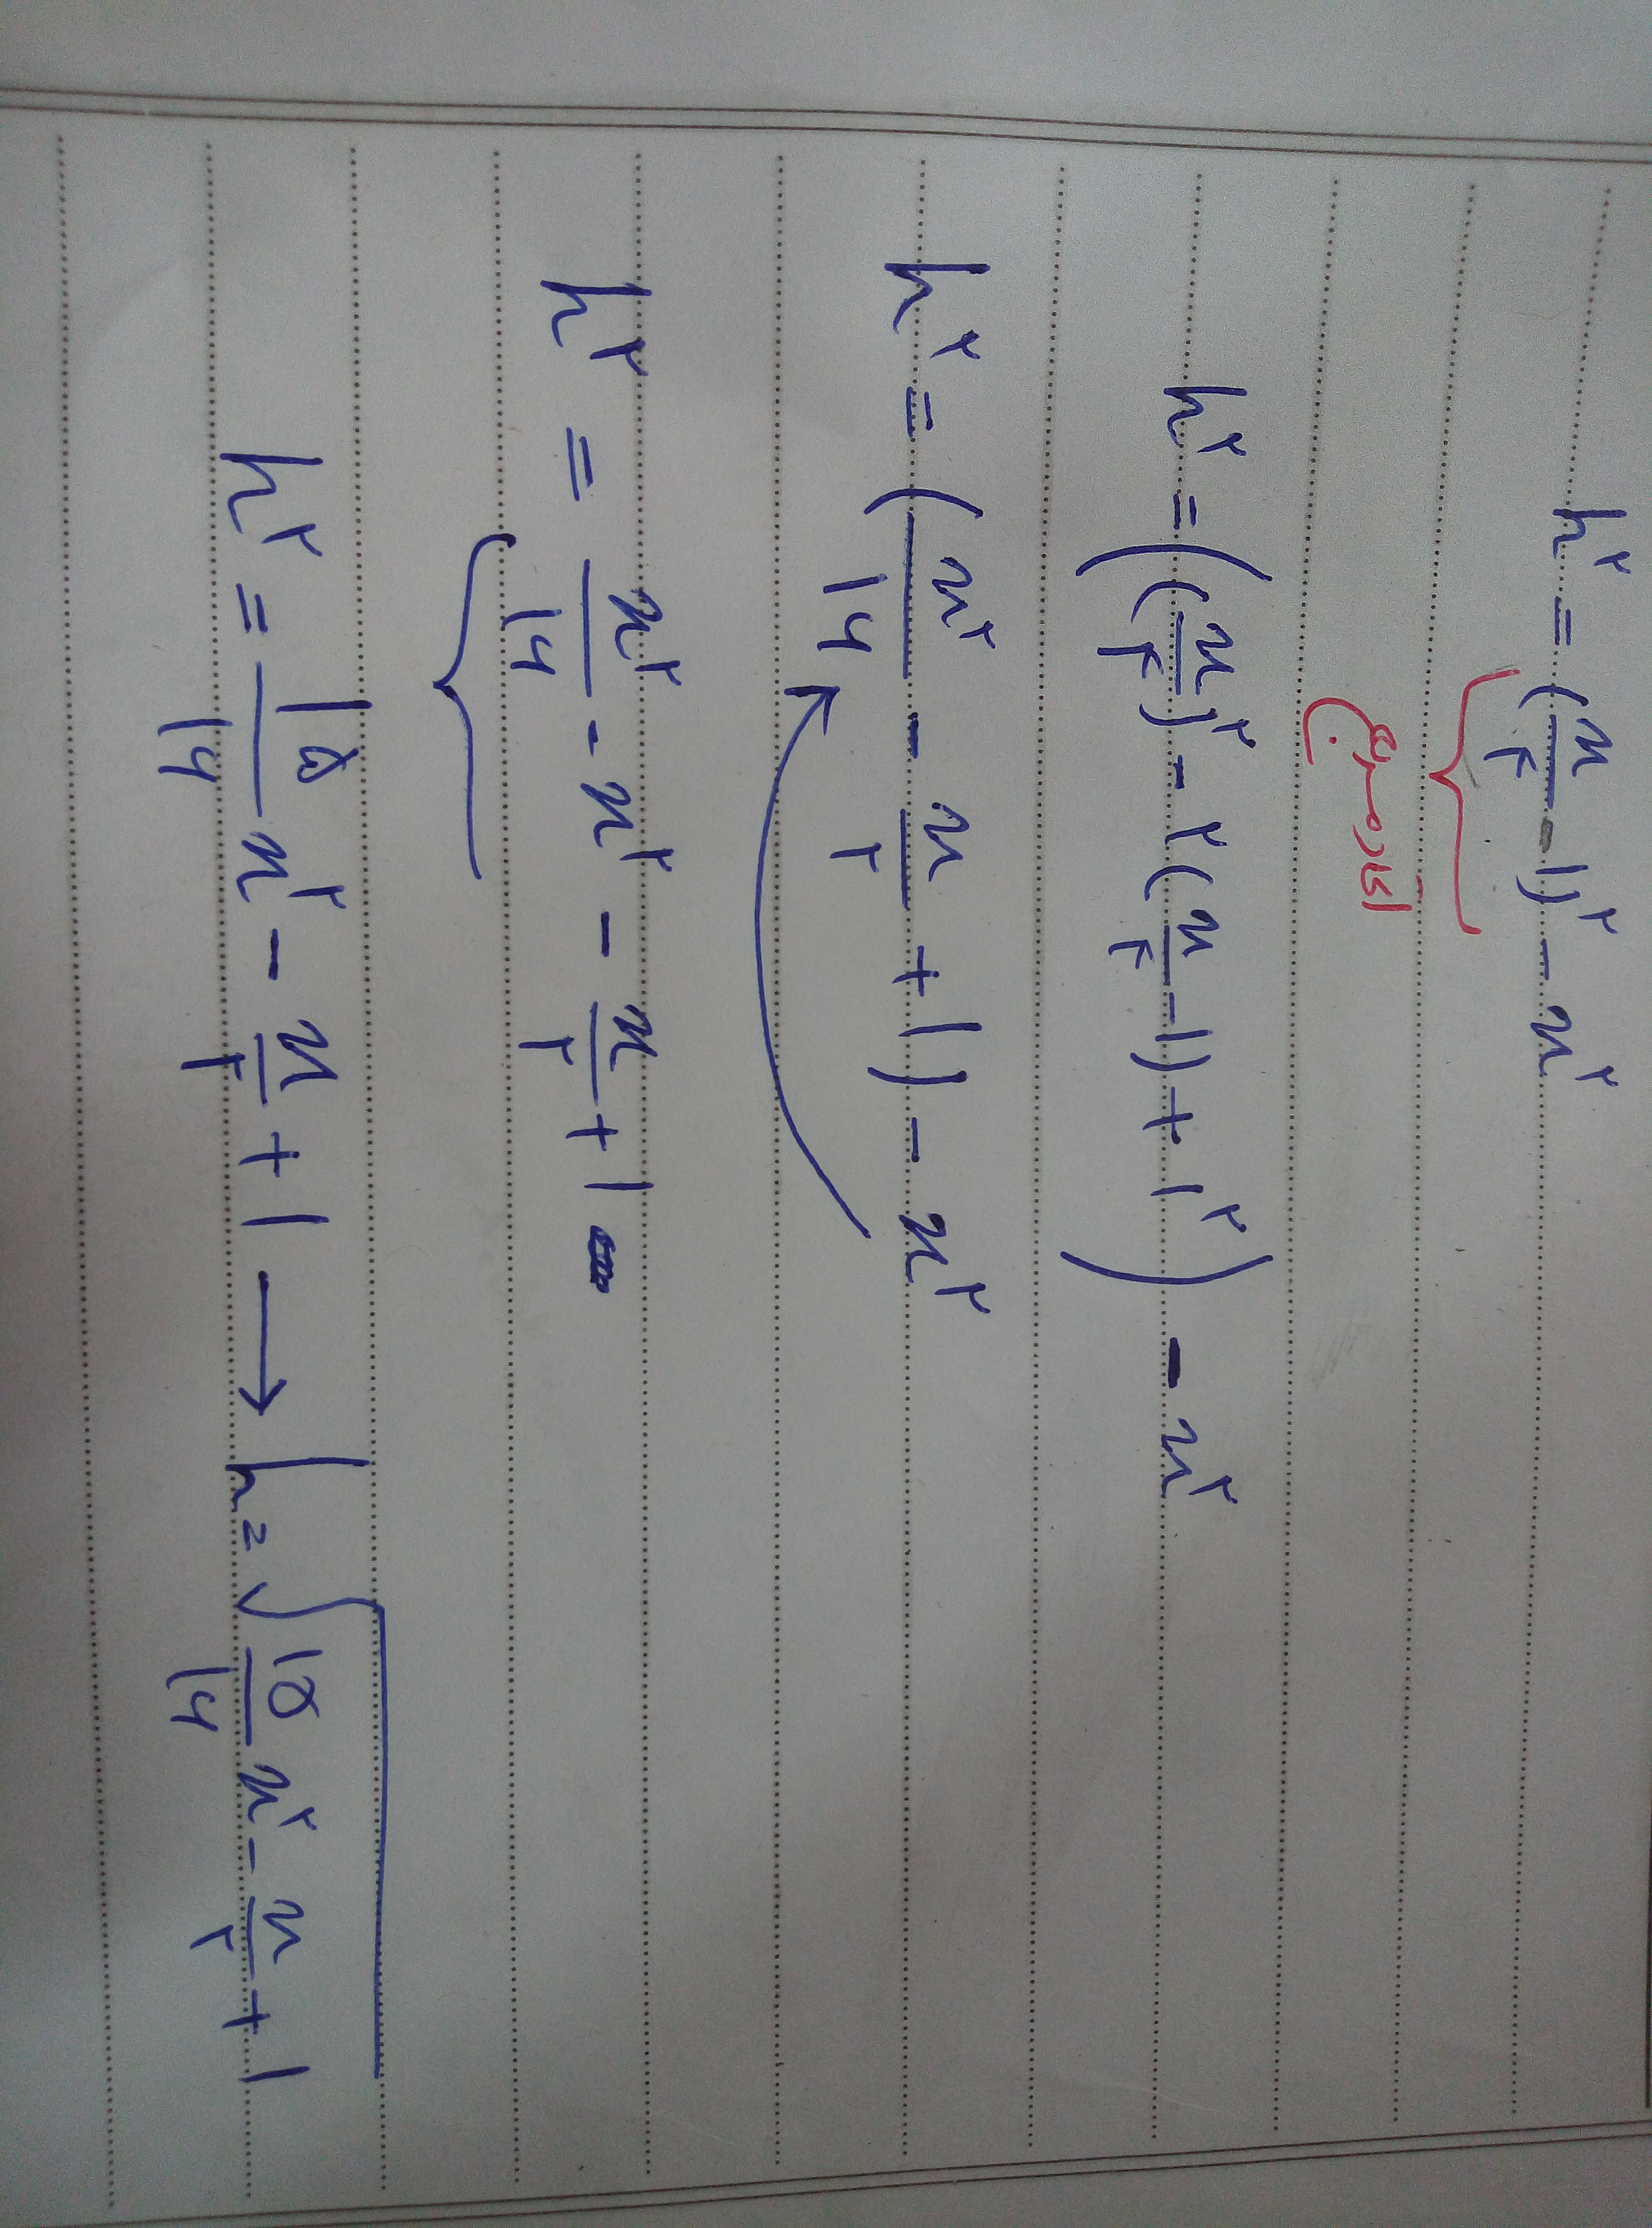 h^۲ = (x/۴ - ۱)^۲ - x^۲
اتحاد مربع
h^۲ = ((x/۴)^۲ - ۲(x/۴ - ۱) + ۱^۲) - x^۲
h^۲ = (x^۲/۱۶ - x/۲ + ۱) - x^۲
h^۲ = x^۲/۱۶ - x^۲ - x/۲ + ۱
h^۲ = ۱۵/۱۶ x^۲ - x/۲ + ۱ → h = √(۱۵/۱۶ x^۲ - x/۲ + ۱)